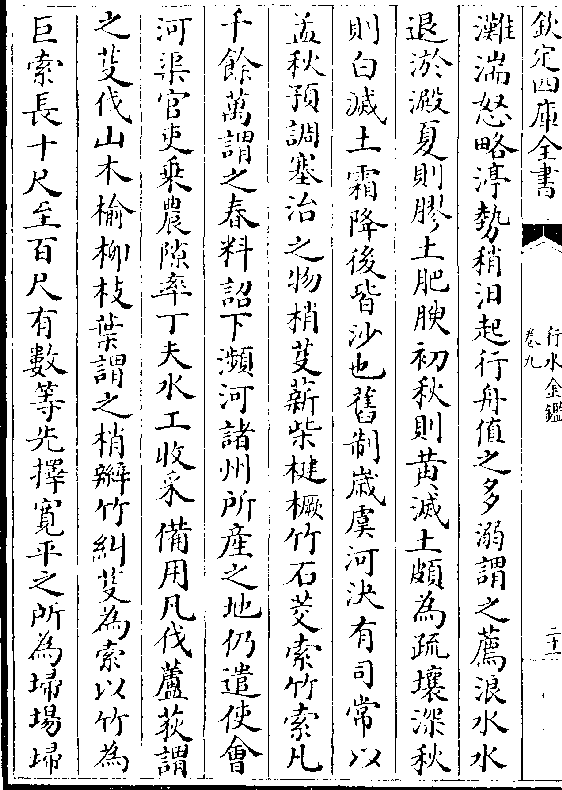 欽定四庫全書
行水金鑑
卷九
二十二
灘湍怒略渟勢稍汨起行舟值之多溺謂之薦浪水水
退淤澱夏則膠土肥腴初秋則黄滅土頗為疏壤深秋
則白滅土霜降後皆沙也舊制嵗虞河決有司常以
孟秋預調塞治之物梢芟薪柴楗橛竹石茭索竹索凡
千餘萬謂之春料詔下瀕河諸州所產之地仍遣使會
河渠官吏乗農隙率丁夫水工收采備用凡伐蘆荻謂
之芟伐山木榆柳枝葉謂之梢辮竹糾芟為索以竹為
巨索長十尺至百尺有數等先擇寛平之所為埽場埽